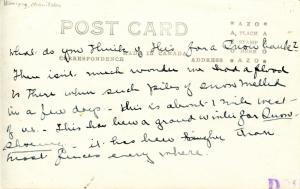 Winnipeg, Manitoba
POST CARD
MADE IN CANADA
CORRESPONDENCE ADDRESS
AZO
PLACE
STAMP
What do you think of this for a Snow bank?
There isn't much wonder we had a flood
there when such piles of snow melted
in a few days - this is about 1 mile west
of us. This has been a grand winter for Snow-
Shoeing - it has been higher than
most fences every where.